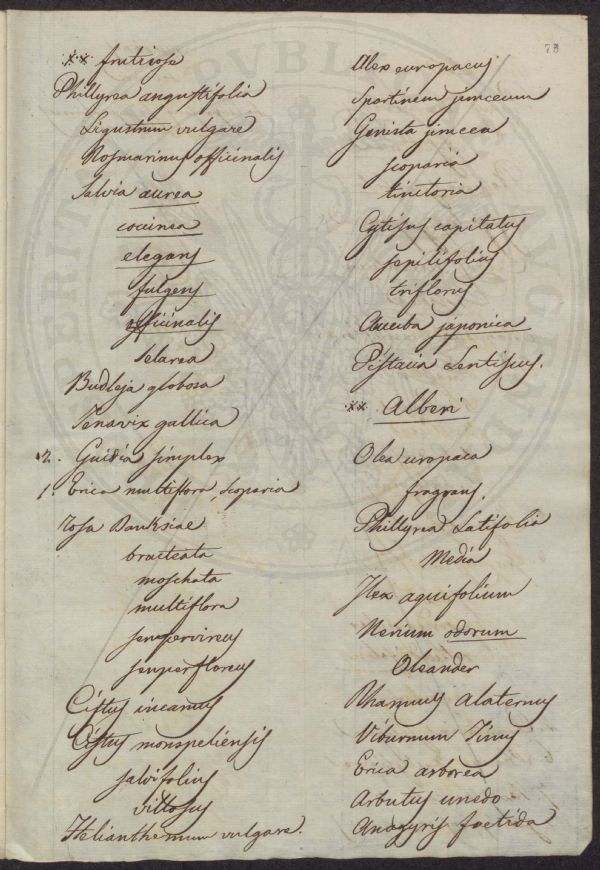 73
** fruticose
Phillyrea angustifolia
Ligustrum vulgare
Rosmarinus officinalis
Salvia aurea
coccinea
elegans
fulgens
officinalis
selarea
Budleja globosa
Tamarix gallica
2. Guidia simplex
1. Erica multiflora, scoparia
rosa Banksiae
bracteata
moschata
multiflora
sempervirens
semperflorens
Cistus incanus
Cistus monspeliensis
salvifolius
villosus
Helianthemum vulgare.
Ulex europaeus
Spartineum junceum
Genista juncea
scoparia
tinctoria
Cytisus capitatus
sepilifolius
triflorus
Aucuba japonica
Pistacia Lentiscus.
** Alberi
Olea europaea
fragrans.
Phillyrea Latifolia
Media
Ilex aquifolium
Nerium odorum
Oleander
Rhamnus alaternus
Viburnum Tinus
Erica arborea
Arbutus unedo
Anagyris foetida